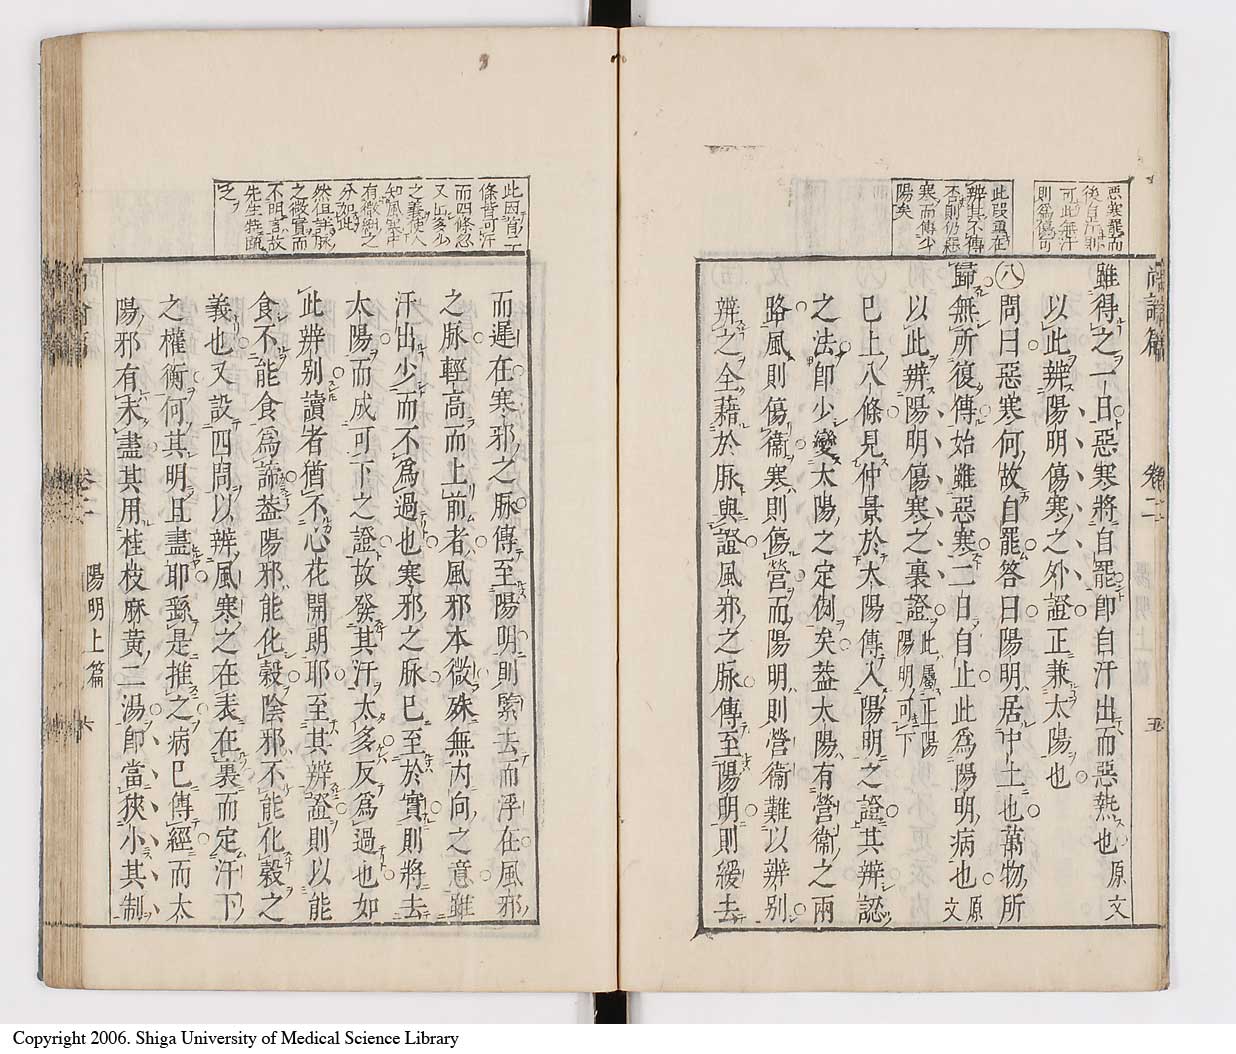 惡寒罷而
後自汗則
可此無汗
則爲傷寒
此段重在
辨其不傳
否則仍惡
寒而傳少
陽矣
尚論篇 卷二 陽明上篇 五
雖得之一日惡寒將自罷卽自汗出而惡熱也 原文
以此辨陽明傷寒之外證正兼太陽也
八 問曰惡寒何故自罷答曰陽明居中土也萬物所
歸無所復傳始雖惡寒二日自止此爲陽明病也 原文
以此辨陽明傷寒之裏證 此屬正陽陽明可下
已上八條見仲景於太陽傳入陽明之證其辨認
之法卽少變太陽之定例矣蓋太陽有營衞之兩
路風則傷衞寒則傷營而陽明則營衞難以辨別
辨之全藉於脉與證風邪之脉傳至陽明則緩去
此因首二
條皆可汗
而四條忽
之義使人
知風寒中
有微細之
分如此
然但詳脉
之微實而
不明言故
先生特疏
之
而遲在寒邪之脉傳至陽明則緊去而浮在風邪
之脉輕高而上前者風邪本微殊無内向之意雖
汗出少而不爲過也寒邪之脉已至於實則將去
太陽而成可下之證故發其汗太多反爲過也如
此辨別讀者猶不心花開朗耶至其辨證則以能
食不能食爲諦蓋陽邪能化穀陰邪不能化穀之
義也又設四問以辨風寒之在表在裏而定汗下
之權衡何其明且盡耶繇是推之病已傳經而太
陽邪有未盡其用桂枝麻黃二湯卽當狹小其制
卷二 陽明上篇 六
Copyright 2006. Shiga University of Medical Science Library